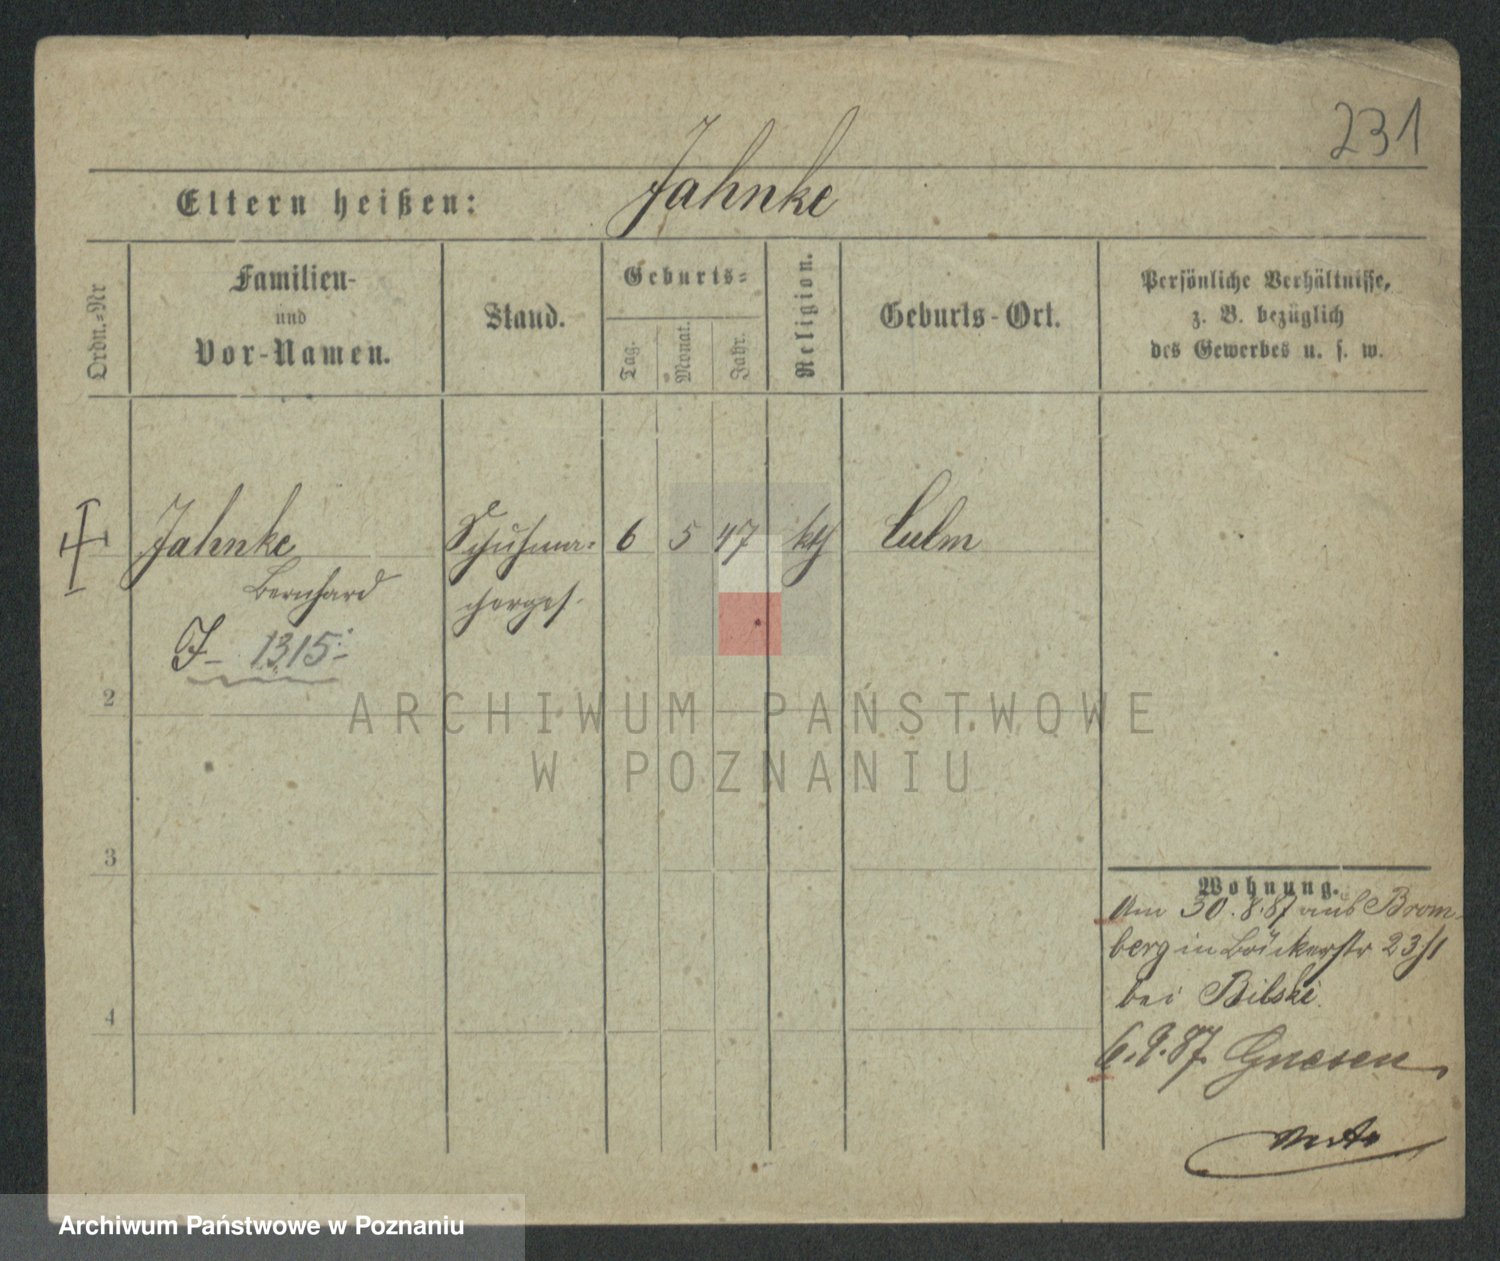 231
Eltern heißen: Jahnke
Ordn.-Nr
Familien-
und
Vor-Namen.
Stand.
Geburts-
Tag.
Monat.
Jahr.
Religion.
Geburts-Ort.
Persönliche Verhältnisse,
z. B. bezüglich
des Gewerbes u. s. w.
Jahnke Schuhma- 6 5 47 kth Culm
Bernhard cherges.
J- 1315.-
2
3
4
Wohnung.
Am 30.8.87 aus Brom-
berg in Bäckerstr 23/1
bei Bilski.
6.9.87 Gnesen
ARCHIWUM PAŃSTWOWE
W POZNANIU
Archiwum Państwowe w Poznaniu